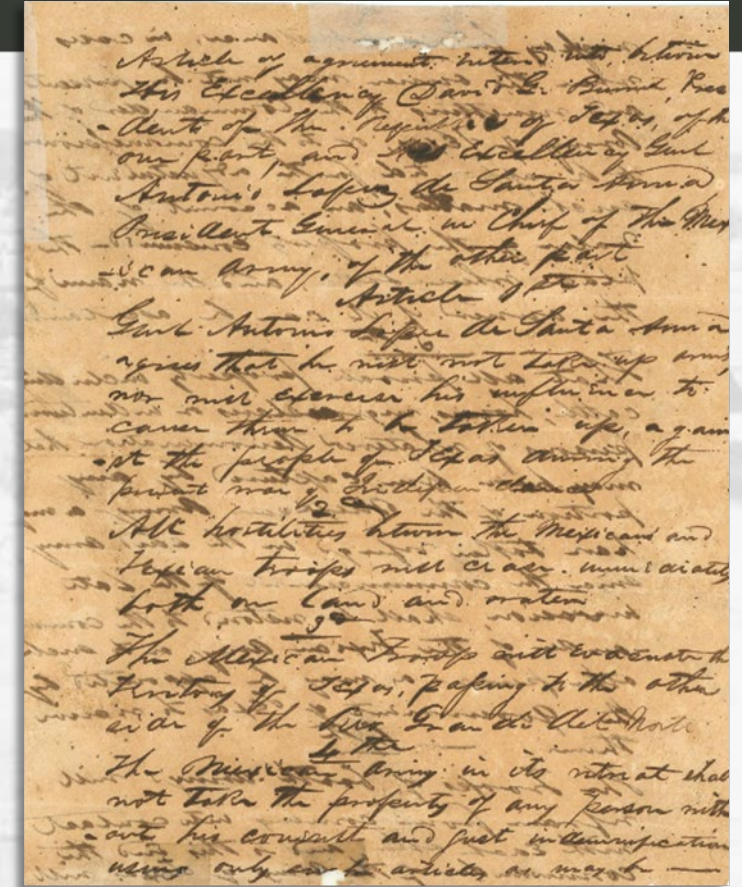 Article of agreement entered into between
His Excellency David G. Burnet, Presi
-dent of the Republic of Texas, of the
one part, and His Excellency Genl
Antonio Lopez de Santa Anna
President General in Chief of the Mex
-ican Army, of the other part
Article 1st
Genl Antonio Lopez de Santa Anna
agrees that he will not take up arms
nor will exercise his influence to
cause them to be taken up, again
-st the people of Texas during the
present war of Independence
2
All hostilities between the Mexican and
Texian troops will cease immediately
both on land and water
3
The Mexican Troops will evacuate the
Territory of Texas, passing to the other
side of the Rio Grande del Norte
4th
The Mexican Army in its retreat shall
not take the property of any person with
-out his consent and just indemnification
using only such articles as may be